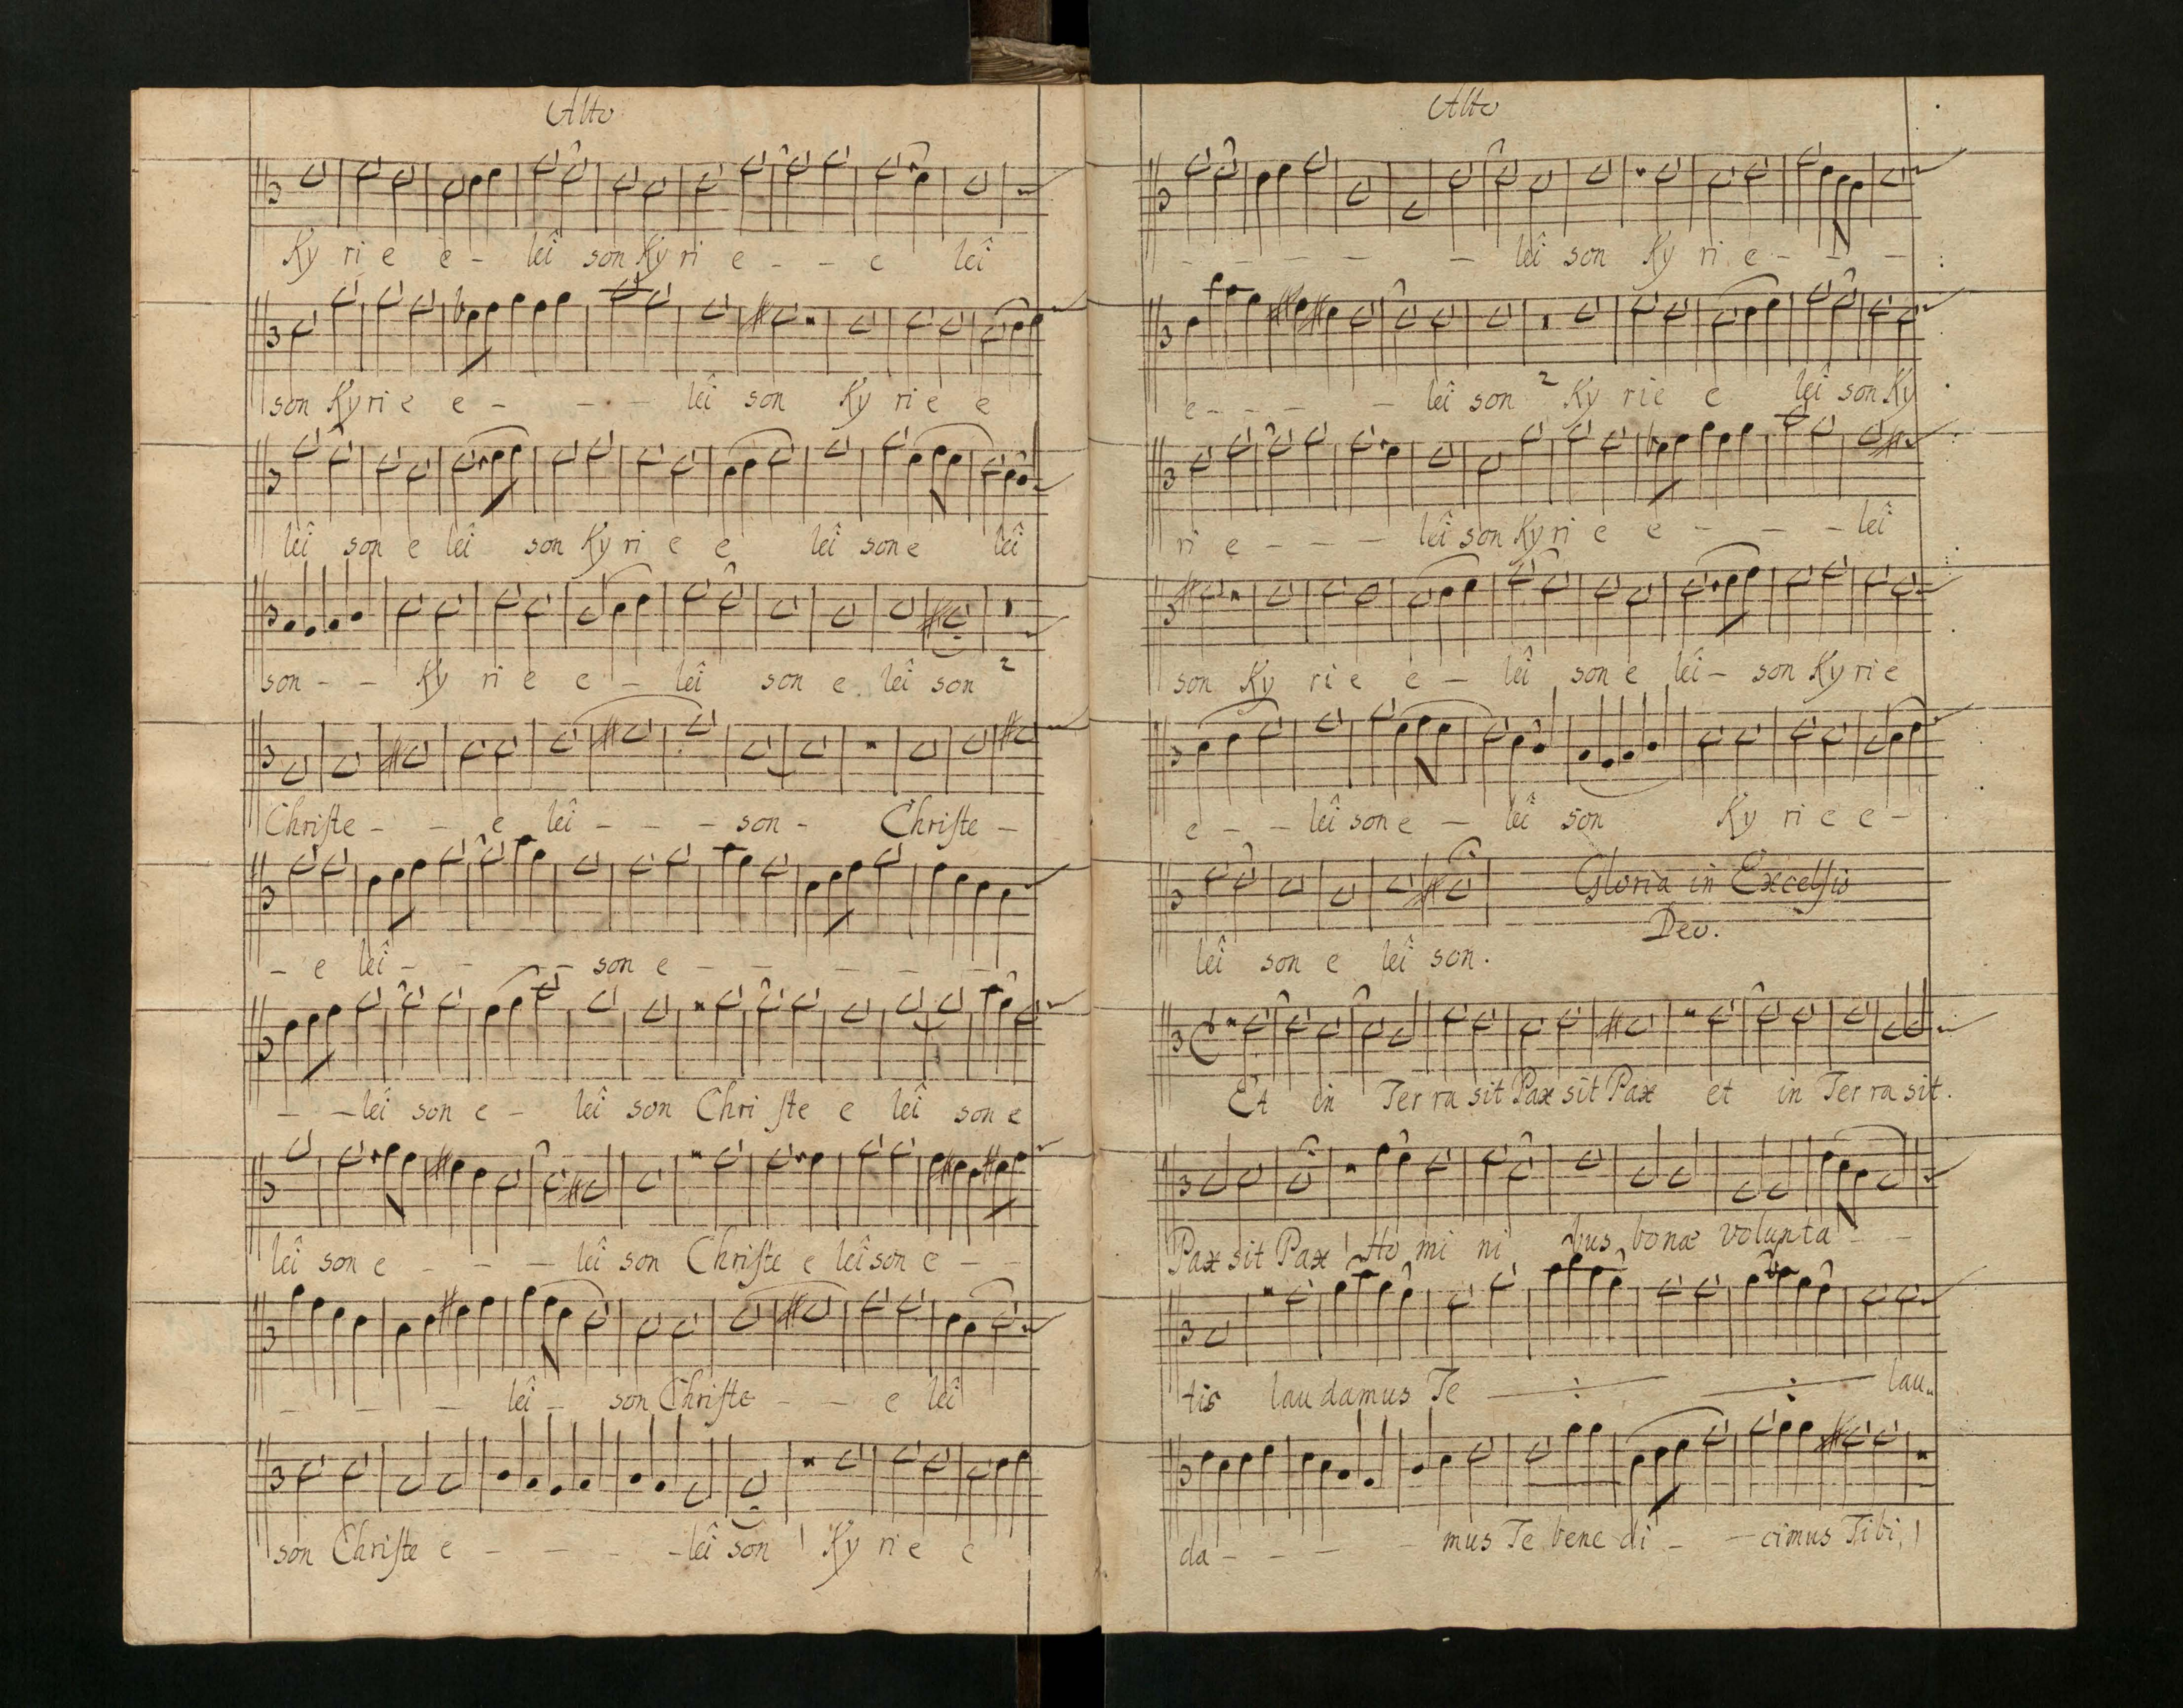 Alto
Ky ri e e - leï son Ky ri e - - e leï
son Ky ri e e - - - leï son Ky ri e e
leï son e leï son Ky ri e e leï son e leï
son - - Ky ri e e - leï son e leï son 2
Chriſte - - e leï - - - son - Chriſte -
- e leï - - - - son e - - - - -
- - leï son e - leï son Chri ſte e leï son e
leï son e - - - leï son Chriſte e leï son e - -
- - - leï - son Chriſte - - e leï
son Chriſte e - - - - leï son Ky ri e e
Alto
- - - - - leï son Ky ri e - - -
e - - - - leï son 2 Ky ri e e leï son Ky
ri e - - - leï son Ky ri e e - - - leï
son Ky ri e e - leï son e leï - son Ky ri e
e - - leï son e - leï son Ky ri e e -
Gloria in Excelſis
Deo.
leï son e leï son.
Et in Ter ra sit Pax sit Pax et in Ter ra sit.
Pax sit Pax Ho mi ni bus bonæ volunta - -
tis lau damus Te — : — — : — lau
da - - - - mus Te bene di - - cimus Tibi,